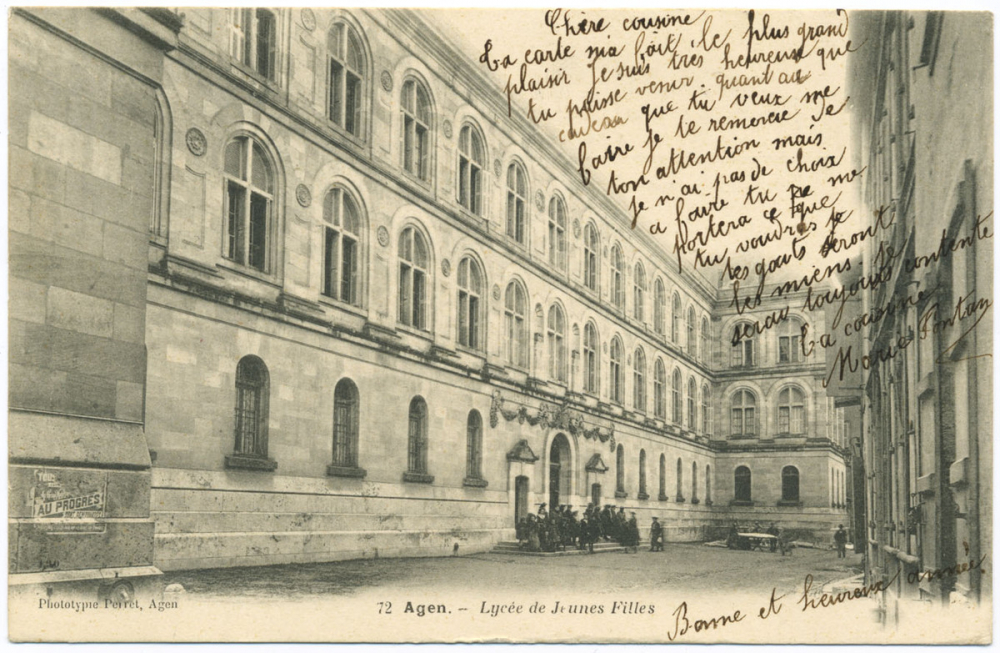 Chère cousine
ta carte m'a fait le plus grand
plaisir je suis très heureuse que
tu puisse venir. quant au
cadeau que tu veux me
faire je te remercie de
ton attention mais
je n'ai pas de choix
a faire tu ne me
portera ce que
tu voudras je
tes gouts seront
les miens je
serai toujours contente
ta cousine
Marie Fontan
Bonne et heureux année
AU PROGRÈS
Phototypie Perret, Agen
72 Agen. – Lycée de Jeunes Filles